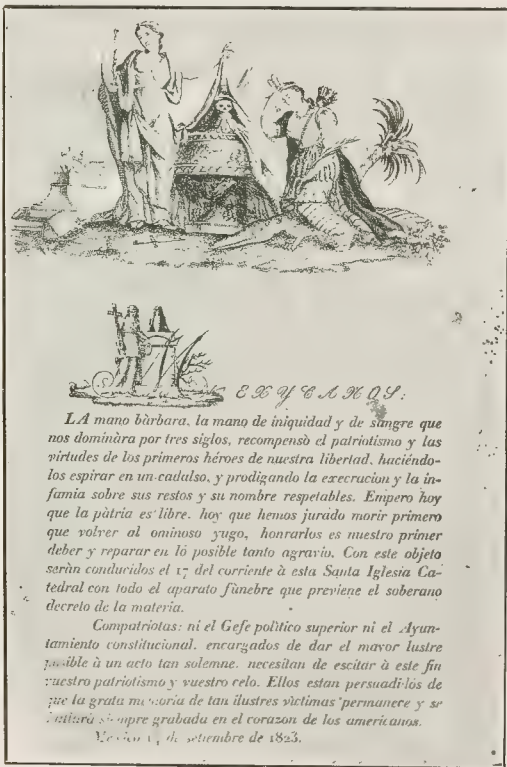 MEXYCANOS:
LA mano bàrbara, la mano de iniquidad y de sangre que
nos dominàra por tres siglos, recompensò el patriotismo y las
virtudes de los primeros héroes de nuestra libertad, haciéndo-
los espirar en un cadalso, y prodigando la execracion y la in-
famia sobre sus restos y su nombre respetables. Empero hoy
que la pàtria es libre, hoy que hemos jurado morir primero
que volver al ominoso yugo, honrarlos es nuestro primer
deber y reparar en lo posible tanto agravio. Con este objeto
seràn conducidos el 17 del corriente à esta Santa Iglesia Ca-
tedral con todo el aparato fùnebre que previene el soberano
decreto de la materia.
Compatriotas: ni el Gefe polìtico superior ni el Ayun-
tamiento constitucional, encargados de dar el mayor lustre
posible à un acto tan solemne, necesitan de escitar à este fin
vuestro patriotismo y vuestro celo. Ellos estan persuadidos de
que la grata memoria de tan ilustres vìctimas permanece y se
siempre grabada en el corazon de los americanos.
de setiembre de 1823.